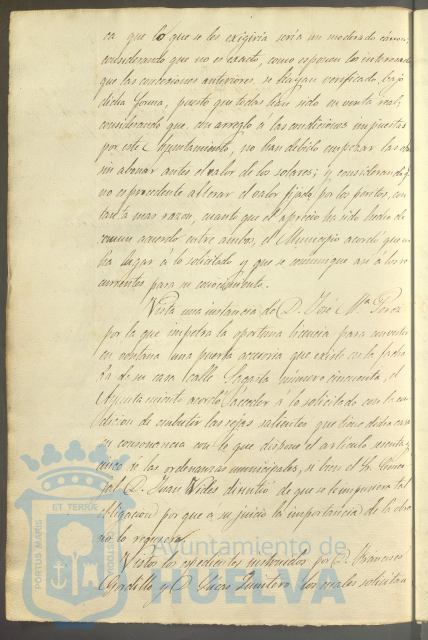 ca que lo que se les exigiria seria un moderado cánon;
considerando que no es exacto, como esponen los interesados
que las concesiones anteriores se hayan verificado bajo
dicha forma, puesto que todas han sido en venta real;
considerando que con arreglo á las condiciones impuestas
por este Ayuntamiento, no han debido empezar las obras
sin abonar antes el valor de los solares; y considerando q.
no es procedente alterar el valor fijado por los peritos, con
tanta mas razon, cuanto que el aprecio ha sido hecho de
comun acuerdo entre ambos, el Municipio acordó que no
ha lugar á lo solicitado y que se comunique asi á los re
currentes para su conocimiento.
Vista una instancia de D. José Mª Perez
por la que impetra la oportuna licencia para convertir
en ventana una puerta accesoria que existe en la facha
da de su casa calle Sagasta número cincuenta, el
Ayuntamiento acordó acceder á lo solicitado con la con
dicion de embutir las rejas salientes que tiene dicha casa
en consonancia con lo que dispone el artículo sesenta y
cinco de las ordenanzas municipales, si bien el Sr. Conce
jal D. Juan Vides disintió de que se le impusiera tal
obligacion por que a su juicio la importancia de la obra
no lo requiera.
Vistos los espedientes instruidos por D. Francisco
Gordillo y D. Quintero los cuales solicitan
PORTUS MARIS ET TERRAE CUSTODIA
Ayuntamiento de
HUELVA